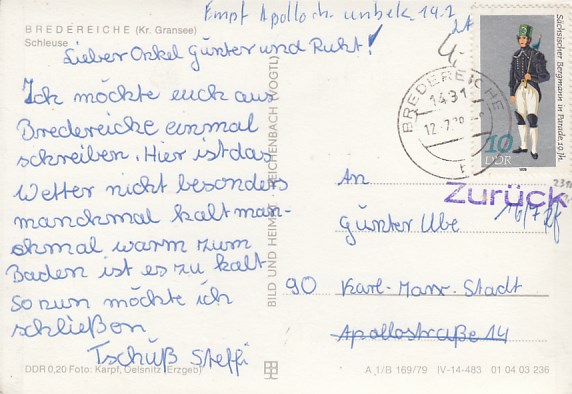 Empf Apollostr. unbek. 14.7
BREDEREICHE (Kr. Gransee)
Schleuse
Lieber Onkel Günter und Ruht!
Ich möchte euch aus
Bredereiche einmal
schreiben. Hier ist das
Wetter nicht besonders
manchmal kalt man-
chmal warm zum
Baden ist es zu kalt
So nun möchte ich
schließen
Tschüß Steffi
DDR 0,20 Foto: Karpf, Oelsnitz (Erzgeb)
BILD UND HEIMAT REICHENBACH (VOGTL)
BREDEREICHE
1431
12-7.79
Sächsischer Bergmann in Parade 19. Jh.
10
DDR
Zurück
16/7
An
Günter Ube
90 Karl-Marx-Stadt
Apollostraße 14
A 1/B 169/79 IV-14-483 01 04 03 236